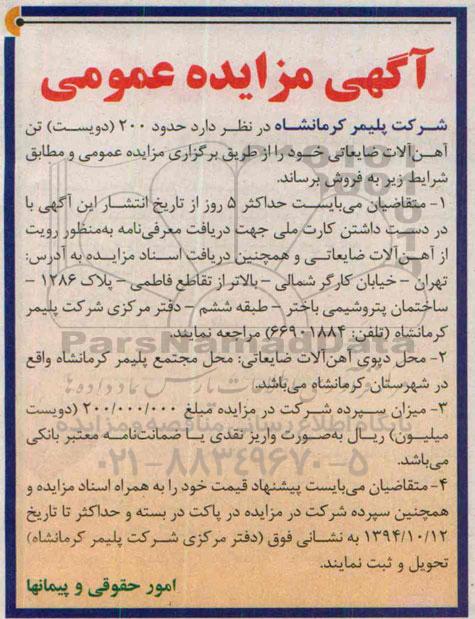 آگهی مزایده عمومی
شرکت پلیمر کرمانشاه در نظر دارد حدود ۲۰۰ (دویست) تن
آهن‌آلات ضایعاتی خود را از طریق برگزاری مزایده عمومی و مطابق
شرایط زیر به فروش برساند.
۱- متقاضیان می‌بایست حداکثر ۵ روز از تاریخ انتشار این آگهی با
در دست داشتن کارت ملی جهت دریافت معرفی‌نامه به‌منظور رویت
از آهن‌آلات ضایعاتی و همچنین دریافت اسناد مزایده به آدرس:
تهران – خیابان کارگر شمالی – بالاتر از تقاطع فاطمی – پلاک ۱۲۸۶ –
ساختمان پتروشیمی باختر – طبقه ششم – دفتر مرکزی شرکت پلیمر
کرمانشاه (تلفن: ۶۶۹۰۱۸۸۴) مراجعه نمایند.
ParsNamadData
۲- محل دپوی آهن‌آلات ضایعاتی: محل مجتمع پلیمر کرمانشاه واقع
در شهرستان کرمانشاه می‌باشد.
۳- میزان سپرده شرکت در مزایده مبلغ ۲۰۰/۰۰۰/۰۰۰ (دویست
پایگاه اطلاع رسانی مناقصه و مزایده
میلیون) ریال به‌صورت واریز نقدی یا ضمانت‌نامه معتبر بانکی
می‌باشد.
۰۲۱-۸۸۳۴۹۶۷۰-۵
۴- متقاضیان می‌بایست پیشنهاد قیمت خود را به همراه اسناد مزایده و
همچنین سپرده شرکت در مزایده در پاکت در بسته و حداکثر تا تاریخ
۱۳۹۴/۱۰/۱۲ به نشانی فوق (دفتر مرکزی شرکت پلیمر کرمانشاه)
تحویل و ثبت نمایند.
امور حقوقی و پیمانها